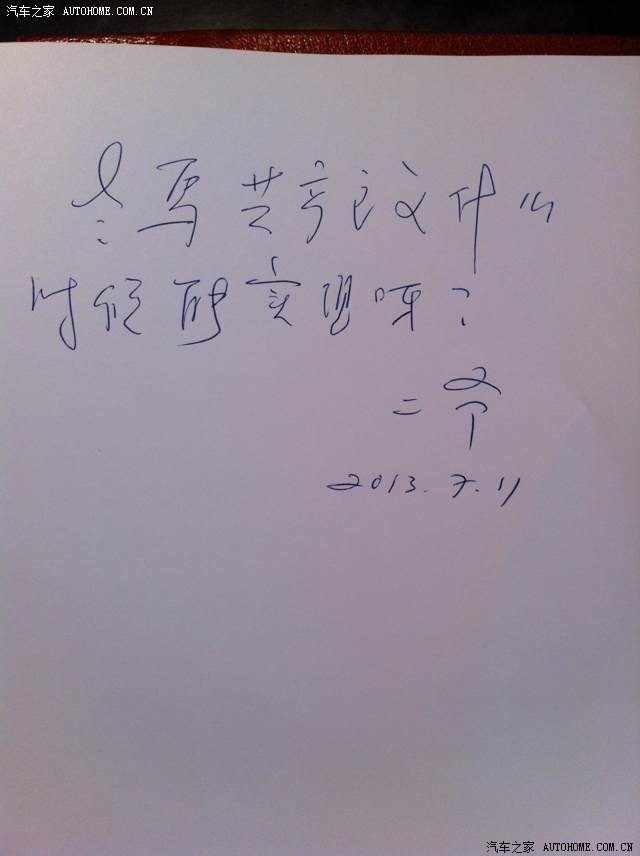 汽车之家 AUTOHOME.COM.CN
写共产主义什么
时候能实现呀？
二爷
2013.7.11
汽车之家 AUTOHOME.COM.CN